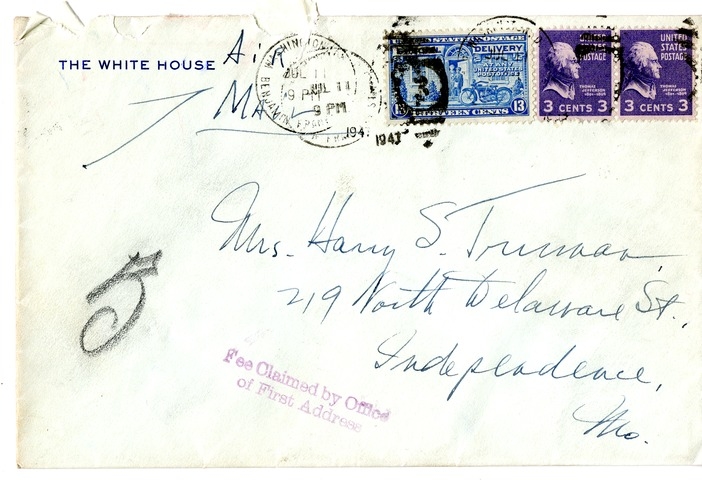 THE WHITE HOUSE
Air
Mail
WASHINGTON
BENJAMIN FRANKLIN
JUL 11
9 PM
1947
JUL 11
9 PM
1947
POSTAGE
DELIVERY
13 13
THIRTEEN CENTS
UNITED
STATES
POSTAGE
THOMAS
JEFFERSON
3 CENTS 3
UNITED
STATES
POSTAGE
THOMAS
JEFFERSON
3 CENTS 3
Mrs. Harry S. Truman,
219 North Delaware St.,
Independence,
Mo.
Fee Claimed by Office
of First Address